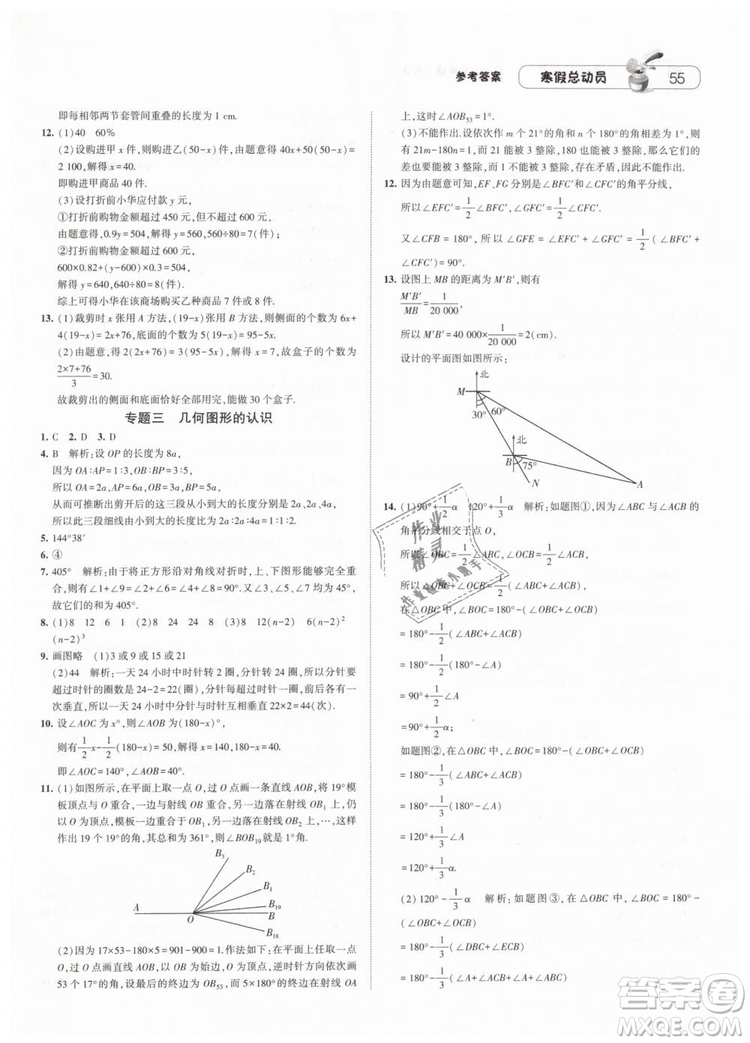 参考答案 寒假总动员 55
即每相邻两节套管间重叠的长度为 1 cm.
12. (1)40 60%
(2)设购进甲(50-x)件，则购进乙(50-x)件，由题意得 40(50-x)=
2 100，解得 x=40.
即购进甲商品 40 件.
(3)设打折前小华应付款 y 元，
①打折前购物金额超过 450 元，但不超过 600 元，
由题意得，0.9y=504，解得 y=560，560÷80=7(件).
②打折前购物金额超过 600 元，
600×0.82+(y-600)×0.3=504，
解得 y=640，640÷80=8(件).
综上可得小华在商场购买乙种商品 7 件或 8 件.
13. (1)裁剪时 x 张用 A 方法，(19-x)张用 B 方法，侧面的个数为 6x+
4(19-x)=2x+76，底面的个数为 5(19-x)=95-5x.
(2)由题意，得 2(2x+76)=3(95-5x)，解得 x=7，故盒子的个数为
(2×7+76)/3=30.
故裁剪出的侧面和底面恰好全部用完，能做 30 个盒子.
专题三 几何图形的认识
1. C 2. D 3. D
4. B 解析：设 OP 的长度为 8a，
因为 OA∶AP=1∶3，OB∶BP=3∶5，
所以 OA=2a，AP=6a，OB=3a，BP=5a，
从而可推断出剪开的这三段从小到大的长度为 2a，2a，4a，
所以此三段细线由小到大的长度比为 2a∶2a∶4a=1∶1∶2.
5. 144°38′
6. ④
7. 405° 解析：由于将正方形沿对角线对折时，上下图形能够完全重
合，则有∠1+∠9=∠2+∠6=∠4+∠8=90°，∠3=∠5=∠7=45°，
故它们的和为 405°.
8. (1)8 12 6 1 (2)8 24 24 8 (3)8 12(n-2) 6(n-2)²
(n-2)³
9. 画图略 (1)3 或 9 或 15 或 21
(2)44 解析：一天 24 小时中时针转 2 圈，分针转 24 圈，所以分针要
超过时针的圈数是 24-2=22(圈)，又因为分针每超过时针 1 圈，前后各
一次垂直，所以一天 24 小时中分针与时针互相垂直 22×2=44(次).
10. 设∠AOC 为 x°，∠AOB 为(180-x)°，
则有 1/2x-1/2(180-x)=50，解得 x=140，
即∠AOC=140°，∠AOB=40°.
11. (1)如图所示，在平面上取一点 O，过点 O 画一条直线 AOB，将 19°模
板顶点与 O 重合，一边与射线 OB 重合，另一边落在射线 OB₁，仍以
O 为模板顶点，一边与射线 OB₁ 重合，另一边落在射线 OB₂ 上，⋯，这样
作出 19 个 19°的角，其总和为 361°，则∠BOB₁₉就是 1°角.
B₃
B₂
B₁
B₁₉
A O B
B₁₈
(2)因为 17×53-180×5=901-900=1. 作法如下：在平面上任取一点
O，过点 O 画直线 AOB，以 OB 为始边，逆时针方向依次画
53 个 17°的角，设最后的终边为 OB₅₃，而 5×180°的终边在射线 OA
上，这时∠AOB₅₃=1°.
(3)不能作出. 设依次作 m 个 21°的角和 n 个 180°的角相差为 1°，则
有 21m-180n=1，而 21 能被 3 整除，180 也能被 3 整除，所以它们的
差也要能被 3 整除，而 1 不能被 3 整除，存在矛盾，因此不能作出.
12. 因为由题意可知，EF、FG 分别是∠BFC′和∠CFC′的角平分线，
所以∠EFC′=1/2∠BFC′，∠GFC′=1/2∠CFC′.
又∠CFB=180°，所以∠GFE=∠EFC′+∠GFC′=1/2(∠BFC′+
∠CFC′)=90°.
13. 设图上 MB 的距离为 M′B′，则有
M′B′/MB=1/20 000，
所以 M′B′=40 000×1/20 000=2(cm).
设计的平面图如图所示：
北
M
60°
30°
北
B 75°
N A
14. (1)90°+1/2α 120°+1/3α 解析：如题图①，因为∠ABC 与∠ACB 的
角平分线相交于点 O，
所以∠OBC=1/2∠ABC，∠OCB=1/2∠ACB，
在△OBC 中，∠BOC=180°-(∠OBC+∠OCB)
=180°-1/2(∠ABC+∠ACB)
=180°-1/2(180°-∠A)
=90°+1/2∠A
=90°+1/2α；
如题图②，在△OBC 中，∠BOC=180°-(∠OBC+∠OCB)
=180°-1/3(∠ABC+∠ACB)
=180°-1/3(180°-∠A)
=120°+1/3∠A
=120°+1/3α.
(2)120°-1/3α 解析：如题图③，在△OBC 中，∠BOC=180°-
1/3(∠DBC+∠ECB)
=180°-1/3(∠A+∠ACB+∠A+∠ABC)
作业精灵
作业检查小助手
答案卷
MXQE.COM